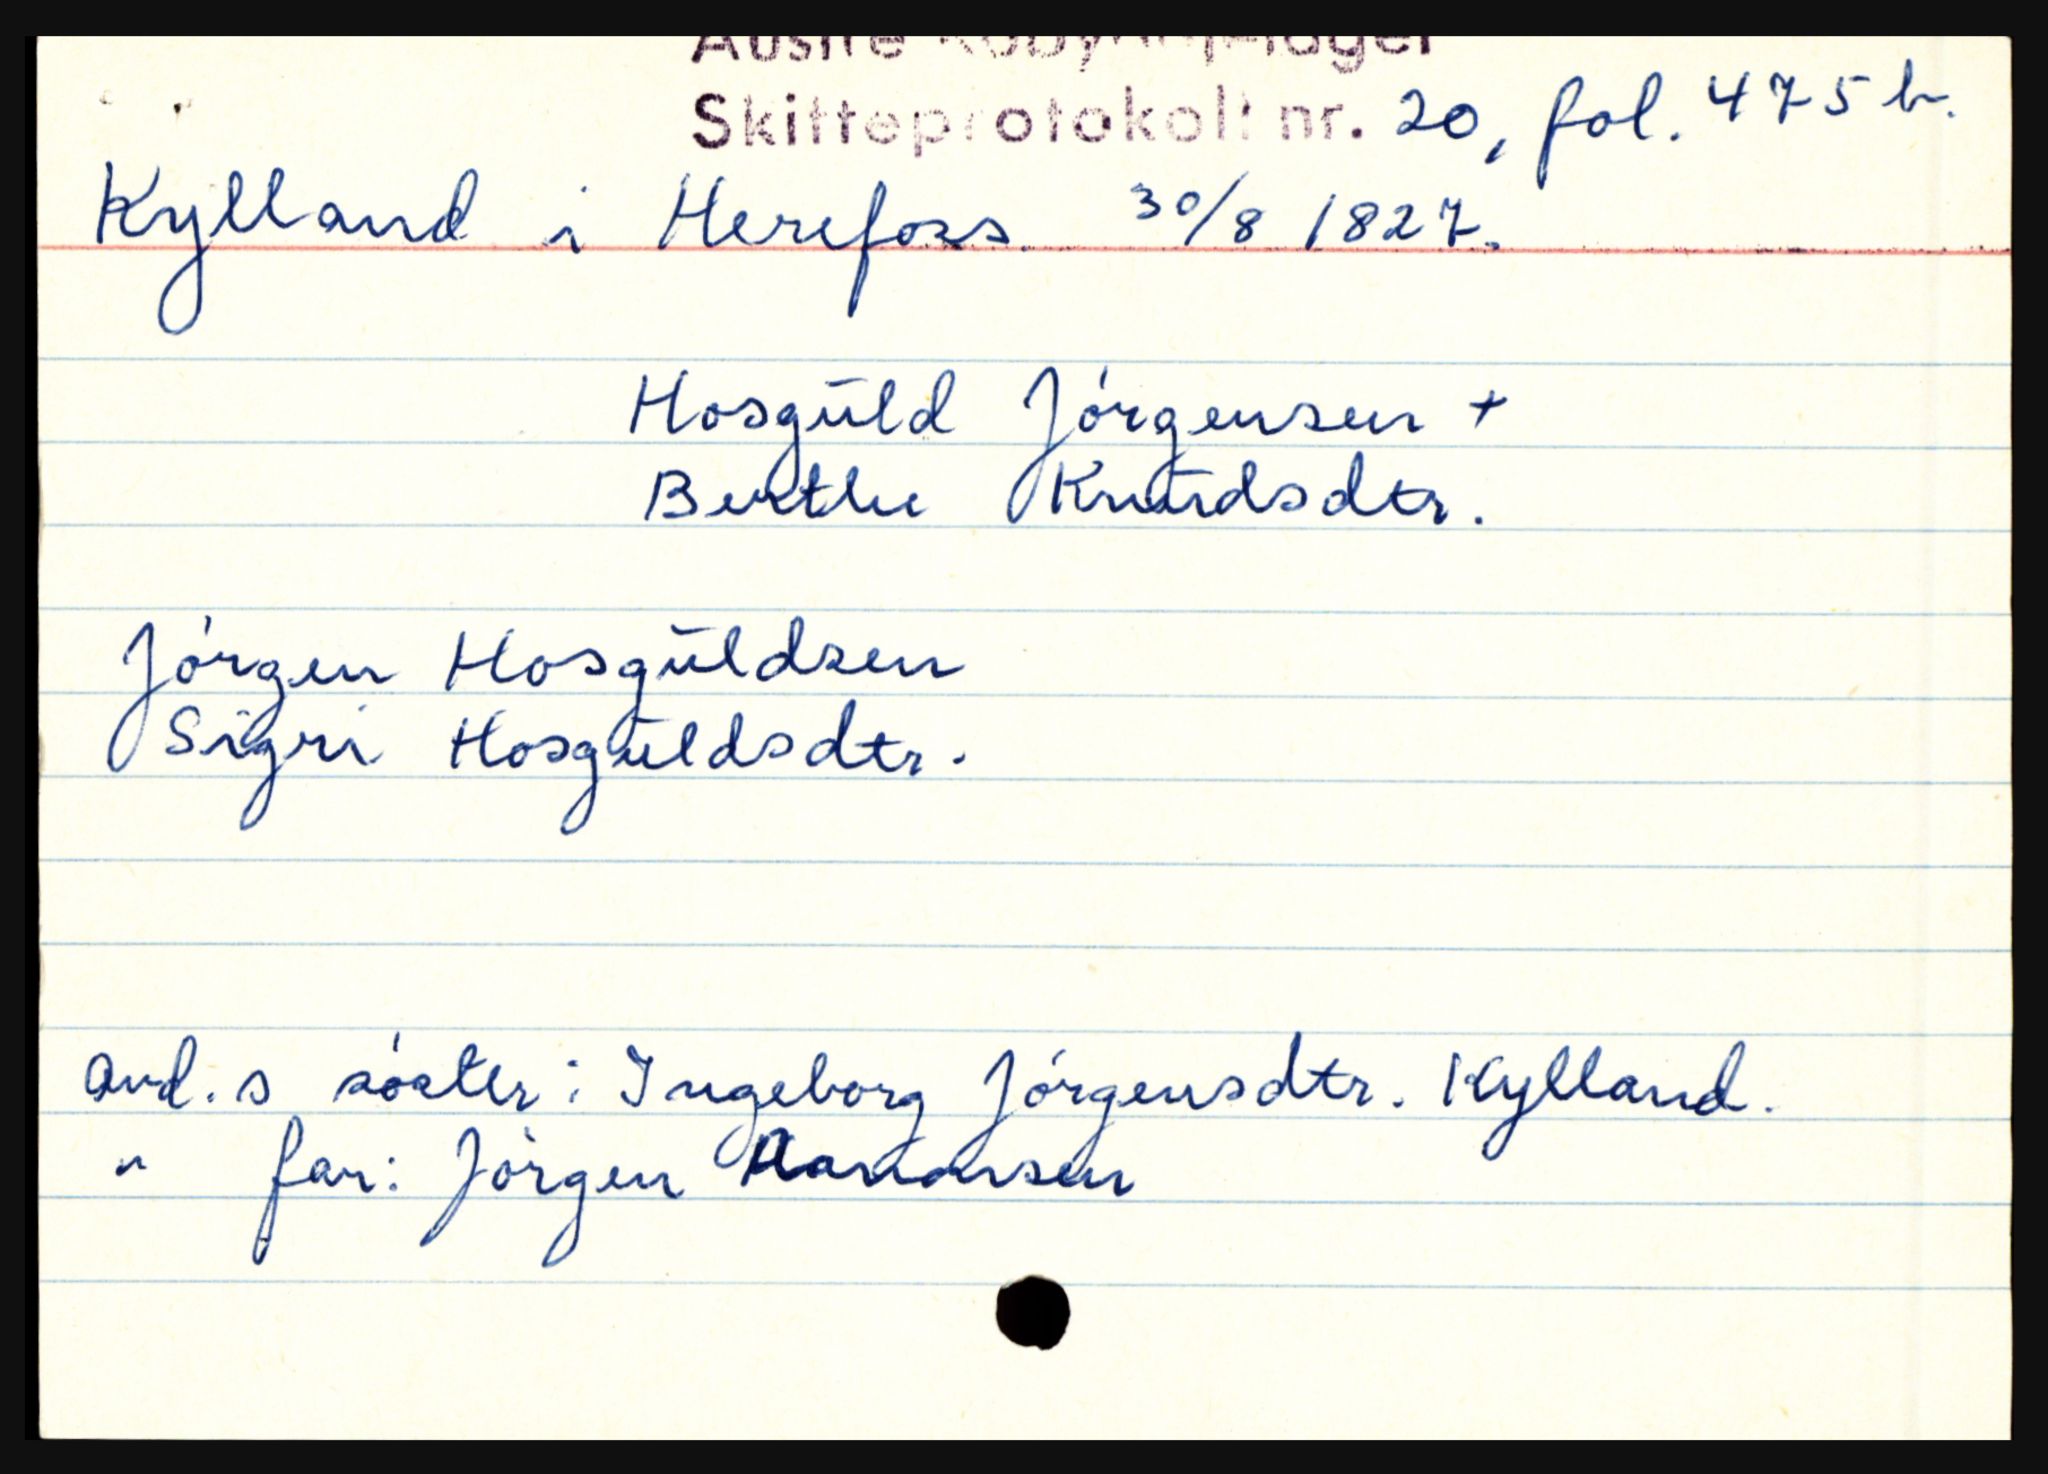 Skifteprotokoll nr. 20, fol. 475 b.
Kylland i Herefoss 30/8 1827.
Hosgŭld Jórgensen +
Berthe Knŭdsdtr.
Jórgen Hosgŭldsen
Sigri Hosgŭldsdtr.
avd. s sóster: Ingeborg Jórgensdtr. Kylland.
" far: Jórgen Aanonsen